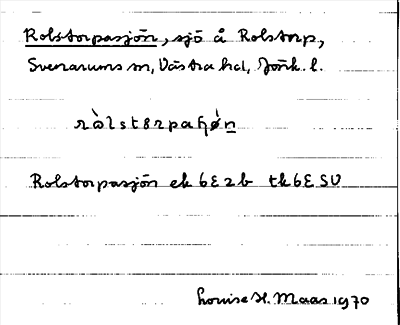 Rolstorpasjön, sjö å Rolstorp,
Svenarums sn, Västra hd, Jönk. l.
ràlstɞrpaɧø̀n
Rolstorpasjön ek 6E2b tk 6E SV
Louise H. Maas 1970